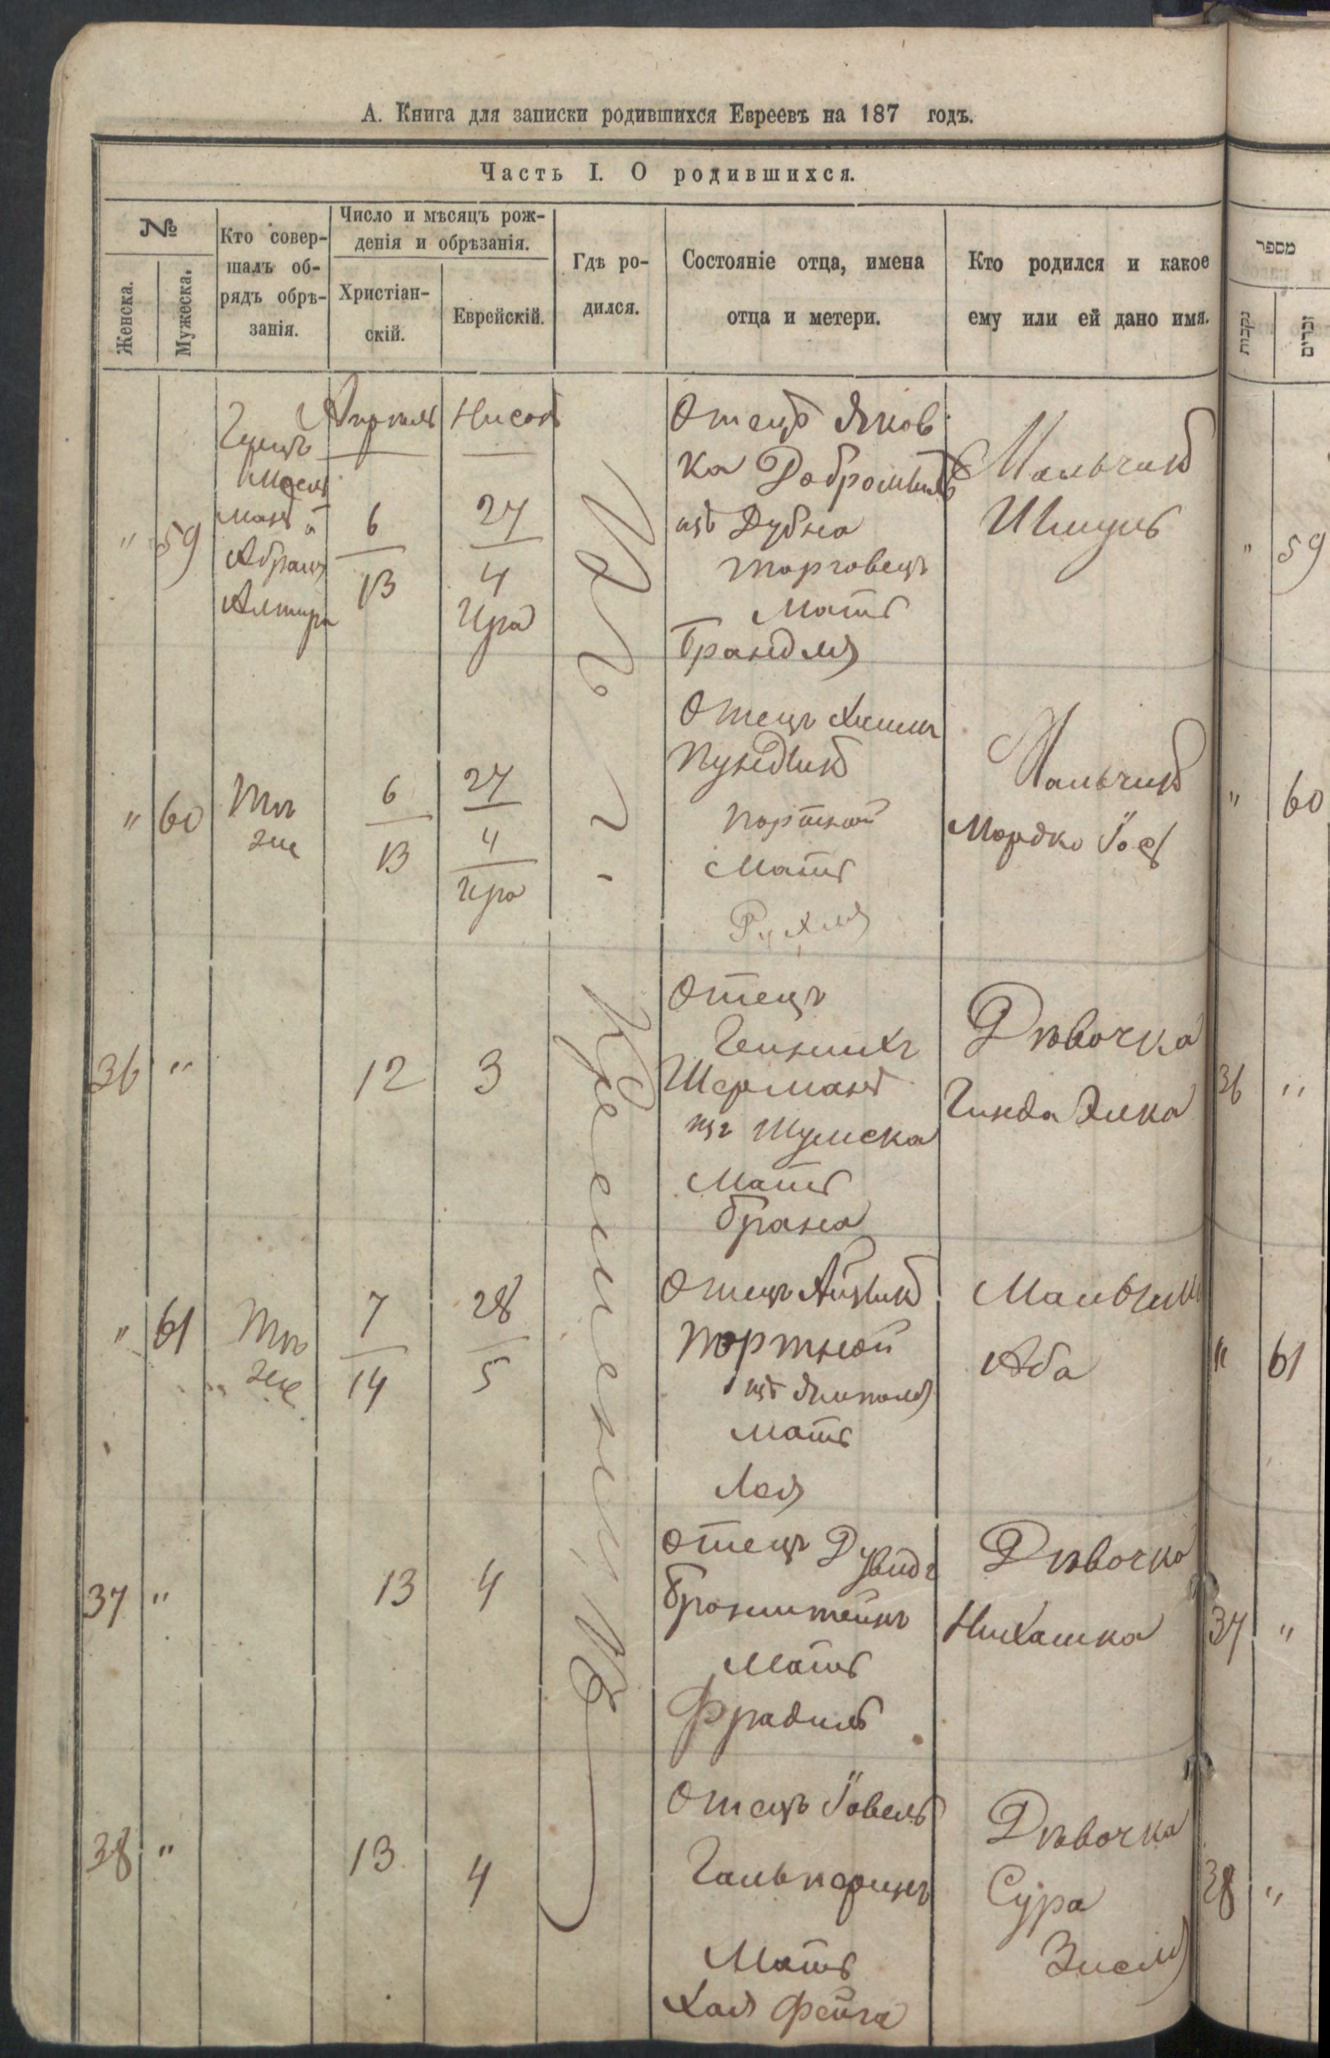 А. Книга для записки родившихся Евреевъ на 187 годъ.
Часть I. О родившихся.
№
Женска.
Мужеска.
Кто совер-
шалъ об-
рядъ обрѣ-
занія.
Число и мѣсяцъ рож-
денія и обрѣзанія.
Христіан-
скій.
Еврейскій.
Гдѣ ро-
дился.
Состояніе отца, имена
отца и метери.
Кто родился и какое
ему или ей дано имя.
מספר
נקבות
זכרים
" 59
Абрамъ
Апрель
6
13
Нисонъ
27
4
Ира
Отецъ Янов
ка
изъ Дубна
торговецъ
Мать
Брандля
Мальчикъ
Шмуль
" 59
" 60
Тѣ
же
6
13
27
4
Ира
Отецъ
Пундикъ
портной
Мать
Рухля
Мальчикъ
Мордко Іос
" 60
36 "
12
3
Отецъ
Генихъ
Шерманъ
изъ Шумска
Мать
Брана
Дѣвочка
Гинда Элка
36 "
" 61
Тѣ
же
7
14
28
5
Отецъ Айзикъ
портной
изъ Ямполя
Мать
Лея
Мальчикъ
Аба
" 61
37 "
13
4
Отецъ Дувидъ
Бронштейнъ
Мать
Фрадиль
Дѣвочка
Нихашка
37 "
38 "
13
4
Отецъ Іовель
Гальперинъ
Мать
Хая Фейга
Дѣвочка
Сура
Зисля
38 "
Въ г. Кременецѣ